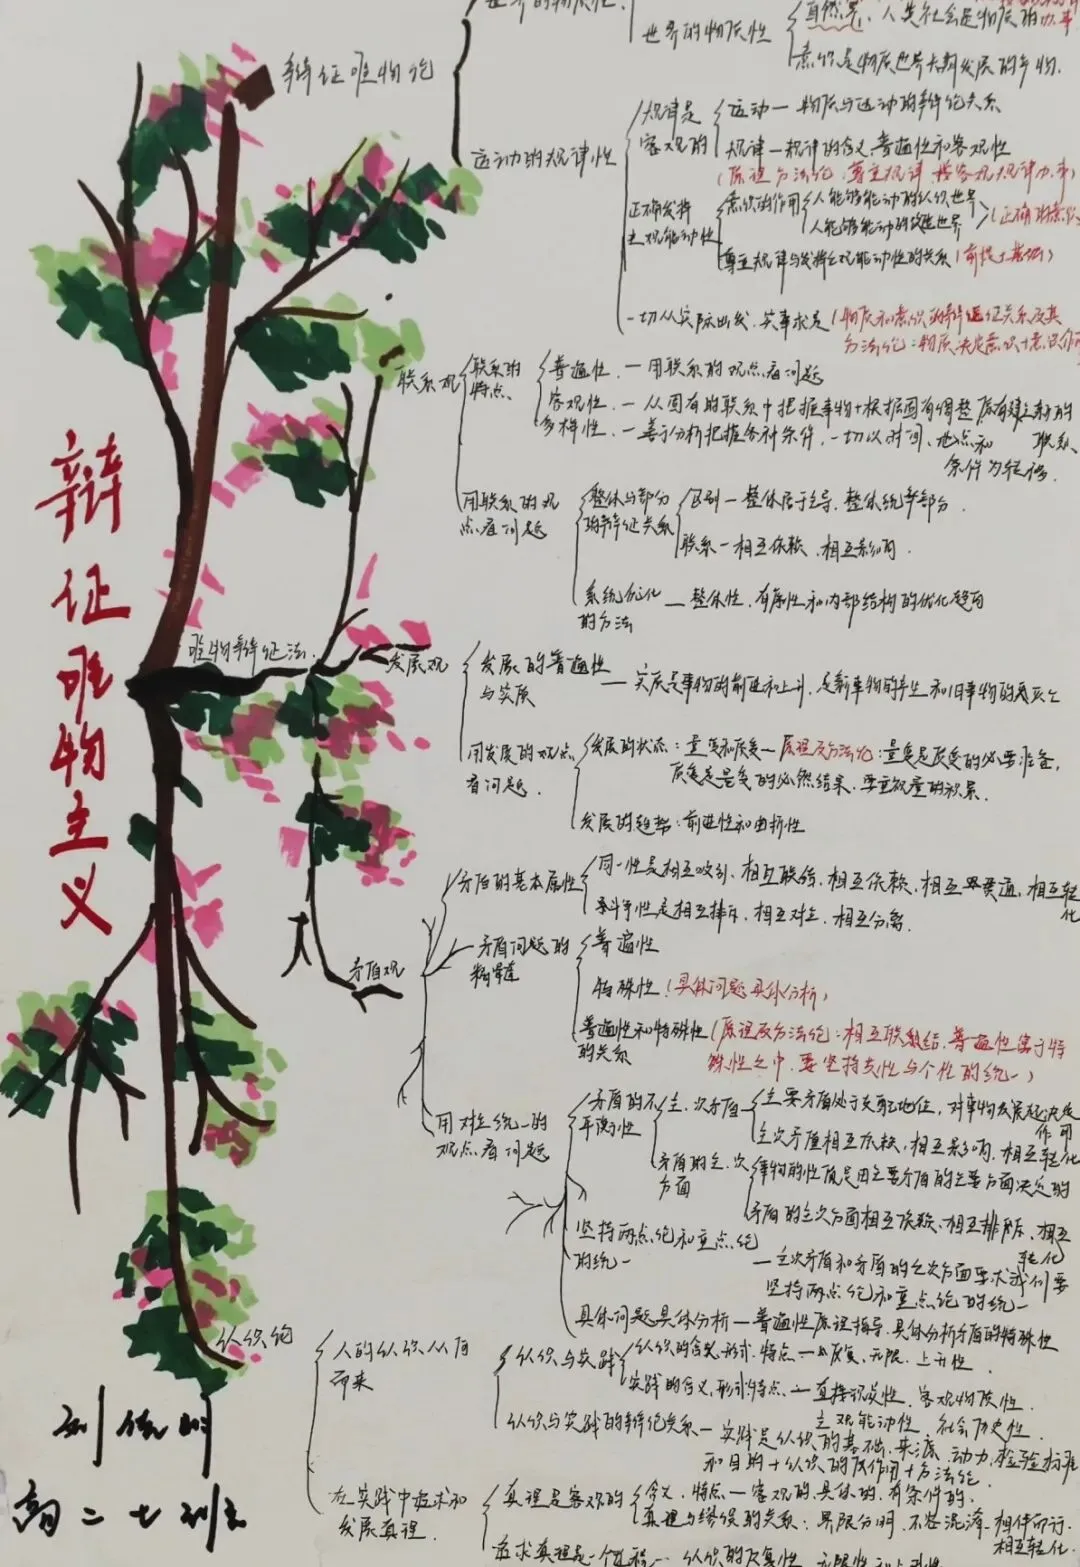 辩证唯物主义
辩证唯物论
世界的物质性
自然界、人类社会是物质的
意识是物质世界长期发展的产物.
运动的规律性
规律是客观的
运动一物质与运动的辩论关系
规律一规律的含义,普遍性和客观性
(原理方法论:尊重规律,按客观规律办事)
正确发挥主观能动性
意识的作用
人能够能动的认识世界
人能够能动的改造世界
(正确的意识
尊重规律与发挥主观能动性的关系(前提+基础)
一切从实际出发.实事求是(物质和意识的辩证关系及其
方法论:物质决定意识+意识作
唯物辩证法.
联系观
联系的特点、
普遍性.一用联系的观点看问题
客观性.一从固有的联系中把握事物+根据固有调整原有建立新的联系.
多样性.一善于分析把握各种条件,一切以时间、地点和条件为转移.
用联系的观点看问题
整体与部分的辩证关系
区别一整体居于主导.整体统率部分.
联系一相互依赖.相互影响.
系统优化的方法
整体性.有序性和内部结构的优化趋向
发展观
发展的普遍性与实质
实质是事物的前进和上升,是新事物的产生和旧事物的灭亡
用发展的观点看问题.
发展的状态:量变和质变一原理及方法论:量变是质变的必要准备,
质变是量变的必然结果.要重视量的积累.
发展的趋势:前进性和曲折性
矛盾观
矛盾的基本属性
同一性是相互吸引、相互联结,相互依赖,相互贯通,相互转化
斗争性是相互排斥、相互对立、相互分离.
矛盾问题的精髓
普遍性
特殊性(具体问题具体分析)
普遍性和特殊性的关系
(原理及方法论:相互联结.普遍性寓于特
殊性之中.要坚持共性与个性的统一)
用对立统一的观点看问题
矛盾的不平衡性
主、次矛盾
主要矛盾处于支配地位,对事物发展起决定作用
主次矛盾相互依赖,相互影响.相互转化
矛盾的主、次方面
事物的性质是由主要矛盾的主要方面决定的
矛盾的主次方面相互依赖.相互排斥、相互转化
坚持两点论和重点论的统一
一主次矛盾和矛盾的主次方面要求我们要
坚持两点论和重点论的统一
具体问题具体分析一普遍性原理指导.具体分析矛盾的特殊性
认识论
人的认识从何而来
认识与实践
认识的含义.形式.特点一反复、无限.上升性.
实践的含义,形式特点.一直接现实性.客观物质性.
主观能动性.社会历史性.
认识与实践的辩论关系一实践是认识的基础.来源.动力,检验标准
和目的+认识的反作用+方法论.
在实践中追求和发展真理.
真理是客观的
含义.特点一客观的.具体的.有条件的.
真理与谬误的关系:界限分明.不容混淆.相伴而行.相互转化.
追求真理是一个过程一认识的反复性
高二七班